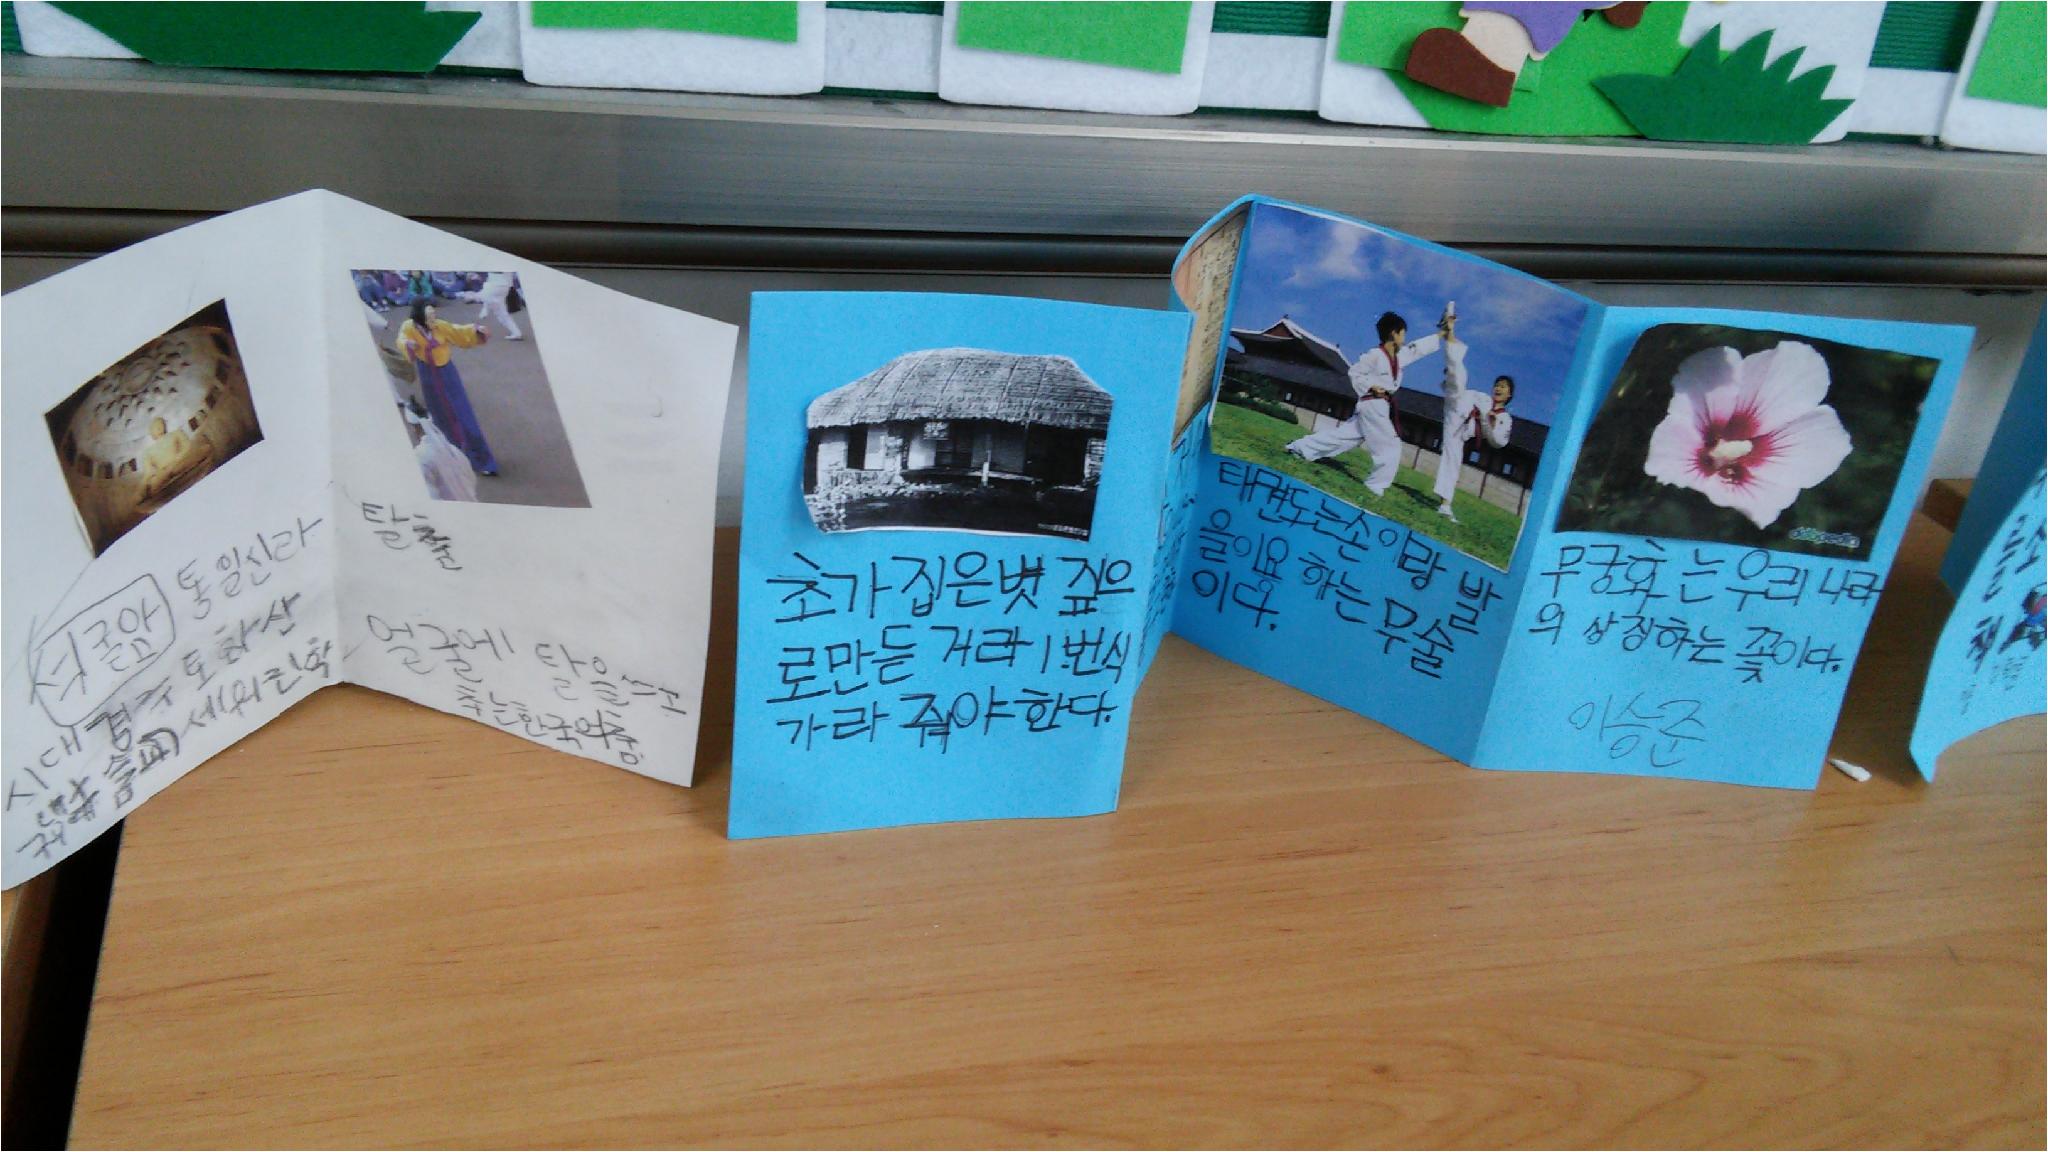 석굴암 통일신라
시대 경주 토화산
세워진
탈춤
얼굴에 탈을쓰고
추는한국의춤
초가집은볏 짚으
로만든 거라 1번식
가라 줘야한다.
태권도는손이랑 발
을이요 하는 무술
이다.
무궁화 는 우리 나라
의 상징하는 꽃이다.
이승준
책